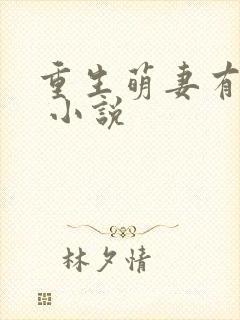 重生萌妻有
小說
林夕情